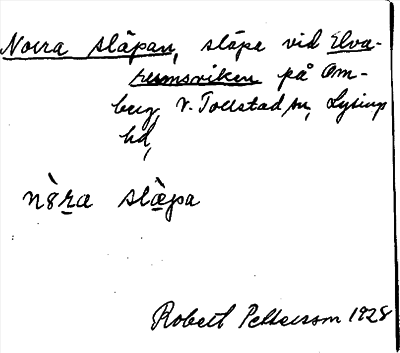 Norra släpan, släpa vid Elva-
rumsviken på Om-
berg, V. Tollstad sn, Lysings
hd,
nȍra slæ̀pa
Robert Pettersson 1928